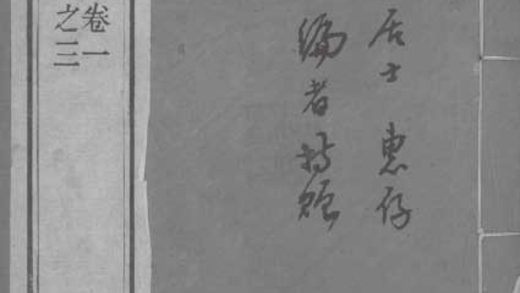 居士 惠存
编者持贈
卷一
之三